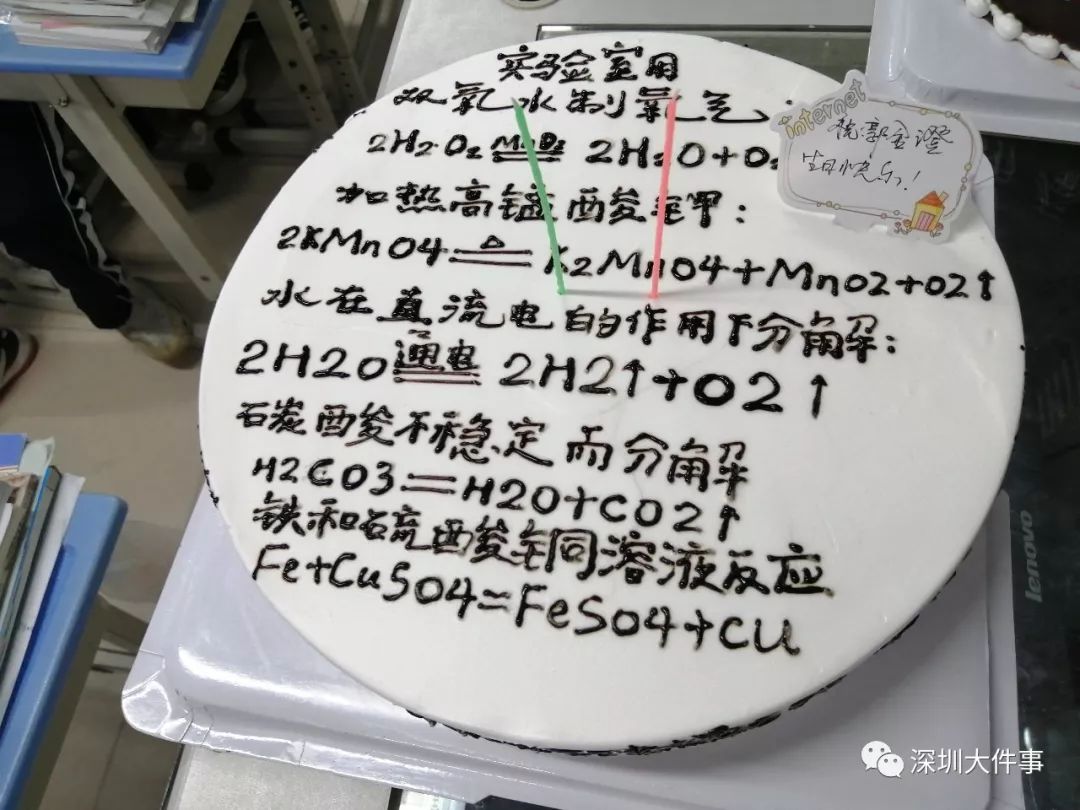 实验室用
双氧水制氧气
2H₂O₂ MnO₂ 2H₂O+O₂
加热高锰酸钾：
2KMnO4 △ K2MnO4+MnO2+O2↑
水在直流电的作用下分解：
2H2O 通电 2H2↑+O2↑
石炭酸不稳定而分解
H2CO3=H2O+CO2↑
铁和石硫酸铜溶液反应
Fe+CuSO4=FeSO4+Cu
internet
生日快乐！
lenovo
深圳大件事